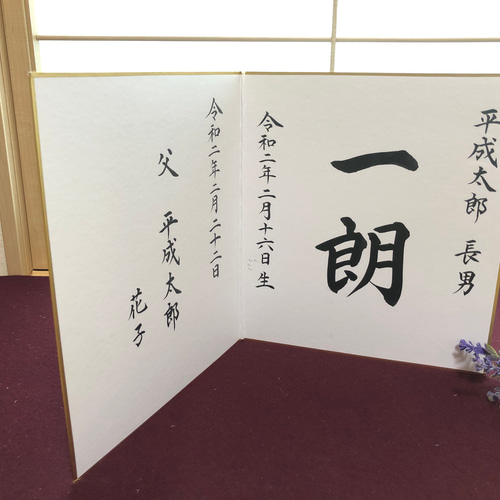 平成太郎 長男
一朗
令和二年二月十六日生
令和二年二月二十二日
父 平成太郎
花子